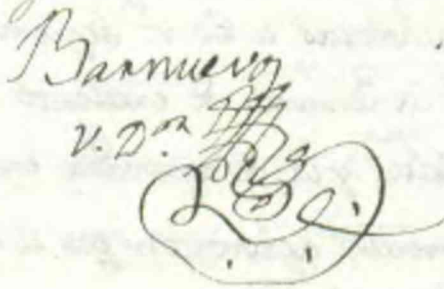 Barnuevo
V. D.ⁿ